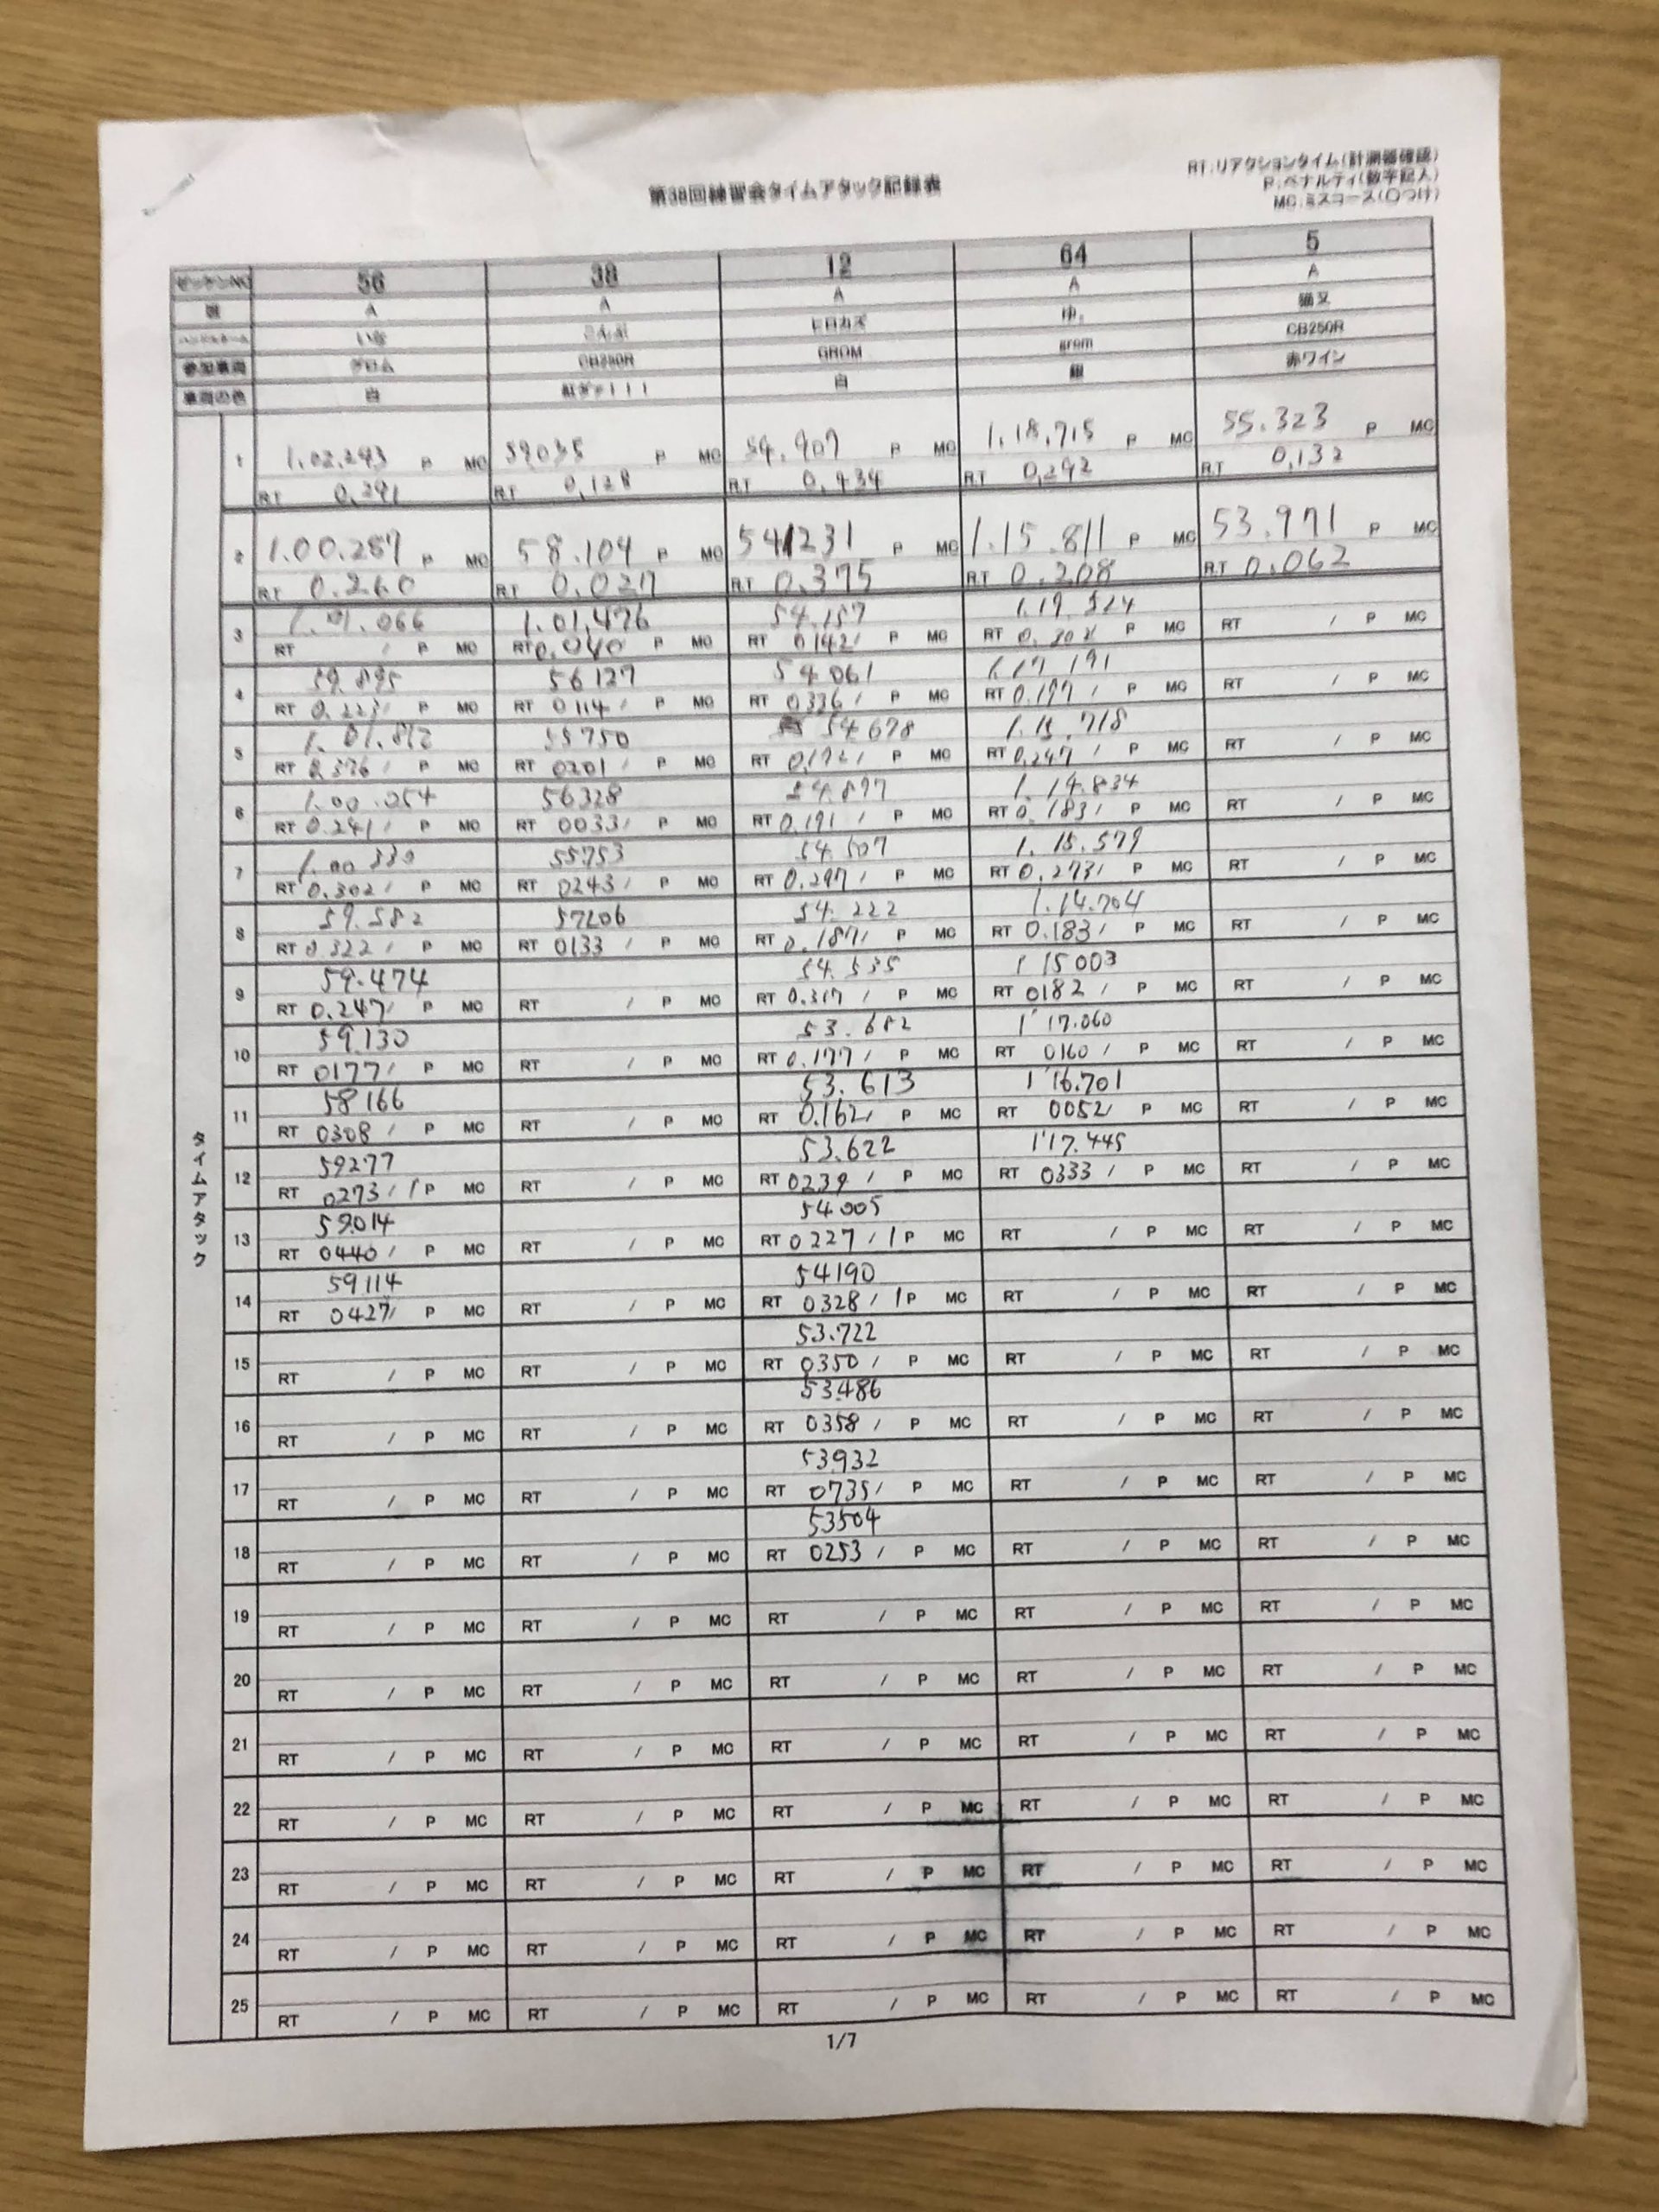 第38回練習会タイムアタック記録表
RT:リアクションタイム(計測器確認)
P:ペナルティ(数字記入)
MC:ミスコース(○つけ)
ゼッケンNO 56 38 12 64 5
A A A A A
ヒロカズ ゆ。 猫又
参加車両 グロム CB250R GROM grom CB250R
車両の色 白 白 銀 赤ワイン
タイムアタック
1 1.02.243 P MC 59035 P MC 54.907 P MC 1.18.715 P MC 55.323 P MC
RT 0.291 RT 0.128 RT 0.434 RT 0.292 RT 0.132
2 1.00.287 P MC 58.104 P MC 54.231 P MC 1.15.811 P MC 53.971 P MC
RT 0.260 RT 0.027 RT 0.375 RT 0.208 RT 0.062
1.01.066 1.01.476 54.157
3 RT / P MC RT 0.040 P MC RT 0142/ P MC RT P MC RT / P MC
59.895 56127 54061 1.17.191
4 RT 0.223/ P MC RT 0114/ P MC RT 0336/ P MC RT 0.197/ P MC RT / P MC
55750 54678 1.15.718
5 RT / P MC RT 0201/ P MC RT / P MC RT 0.247/ P MC RT / P MC
1.00.054 56328 54.897 1.14.834
6 RT 0.241/ P MC RT 0033/ P MC RT 0.191/ P MC RT 0.183/ P MC RT / P MC
1.00.330 55753 54.507 1.15.579
7 RT 0.302/ P MC RT 0243/ P MC RT 0.297/ P MC RT 0.273/ P MC RT / P MC
59.582 57206 54.222 1.14.704
8 RT 0.322/ P MC RT 0133 / P MC RT 0.187/ P MC RT 0.183/ P MC RT / P MC
59.474 54.535 1 15003
9 RT 0.247/ P MC RT / P MC RT 0.317/ P MC RT 0182 / P MC RT / P MC
59.130 53.682 1'17.060
10 RT 0177/ P MC RT / P MC RT 0.177/ P MC RT 0160/ P MC RT / P MC
58166 53.613 1'16.701
11 RT 0308/ P MC RT / P MC RT 0.162/ P MC RT 0052/ P MC RT / P MC
59277 53.622 1'17.445
12 RT 0273/1P MC RT / P MC RT 0239 / P MC RT 0333/ P MC RT / P MC
59.014 54.005
13 RT 0440/ P MC RT / P MC RT 0227/1P MC RT / P MC RT / P MC
59114 54190
14 RT 0427/ P MC RT / P MC RT 0328/1P MC RT / P MC RT / P MC
53.722
15 RT / P MC RT / P MC RT 0350/ P MC RT / P MC RT / P MC
53.486
16 RT / P MC RT / P MC RT 0358/ P MC RT / P MC RT / P MC
53932
17 RT / P MC RT / P MC RT 0735/ P MC RT / P MC RT / P MC
53504
18 RT / P MC RT / P MC RT 0253/ P MC RT / P MC RT / P MC
19 RT / P MC RT / P MC RT / P MC RT / P MC RT / P MC
20 RT / P MC RT / P MC RT / P MC RT / P MC RT / P MC
21 RT / P MC RT / P MC RT / P MC RT / P MC RT / P MC
22 RT / P MC RT / P MC RT / P MC RT / P MC RT / P MC
23 RT / P MC RT / P MC RT / P MC RT / P MC RT / P MC
24 RT / P MC RT / P MC RT / P MC RT / P MC RT / P MC
25 RT / P MC RT / P MC RT / P MC RT / P MC RT / P MC
1/7